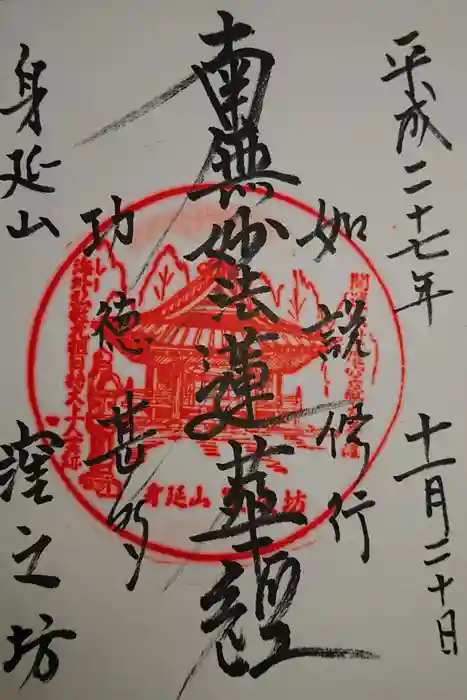 平成二十七年 十一月二十日
如説修行
南無妙法蓮華経
功徳甚多
身延山 窪之坊
身延山 之坊